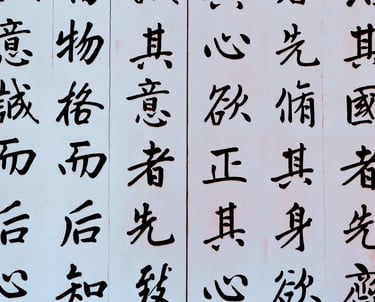 其國者先齊
者先脩其身欲
其心欲正其心
其意者先致
物格而后知
意誠而后心